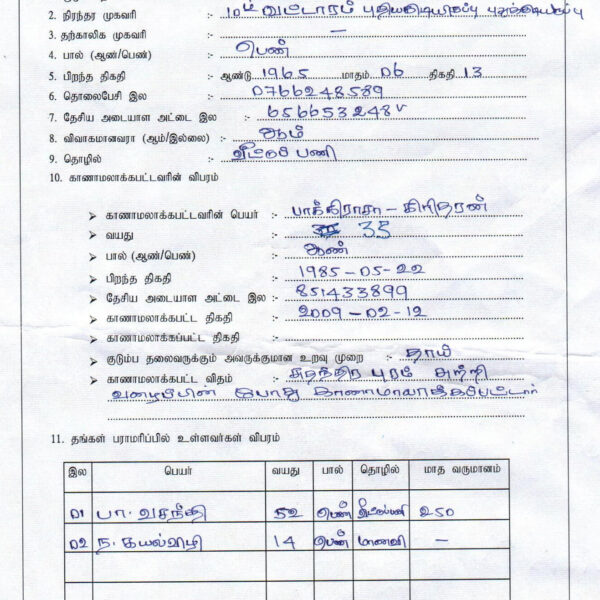 2. நிரந்தர முகவரி :- 10ம் வட்டாரம் புதியகுடியிருப்பு புதுக்குடியிருப்பு
3. தற்காலிக முகவரி :- —
4. பால் (ஆண்/பெண்) :- பெண்
5. பிறந்த திகதி :- ஆண்டு 1965 மாதம் 06 திகதி 13
6. தொலைபேசி இல :- 0766248589
7. தேசிய அடையாள அட்டை இல :- 656653248V
8. விவாகமானவரா (ஆம்/இல்லை) :- ஆம்
9. தொழில் :- வீட்டுப் பணி
10. காணாமலாக்கபட்டவரின் விபரம்
➤ காணாமலாக்கபட்டவரின் பெயர் :- பாக்கிராசா – கிரிதரன்
➤ வயது :- 35
➤ பால் (ஆண்/பெண்) :- ஆண்
➤ பிறந்த திகதி :- 1985-05-22
➤ தேசிய அடையாள அட்டை இல :- 851433899
➤ காணாமலாக்கபட்ட திகதி :- 2009-02-12
➤ காணாமலாக்கப்பட்ட திகதி :-
➤ குடும்ப தலைவருக்கும் அவருக்குமான உறவு முறை :- தாய்
➤ காணாமலாக்கபட்ட விதம் :- சுதந்திர புரம் சுற்றி
வளைப்பின் போது காணாமலாக்கப்பட்டார்
11. தங்கள் பராமரிப்பில் உள்ளவர்கள் விபரம்
இல பெயர் வயது பால் தொழில் மாத வருமானம்
01 பா. வசந்தி 52 பெண் வீட்டுப்பணி 250
02 ந. கயல்விழி 14 பெண் மாணவி –